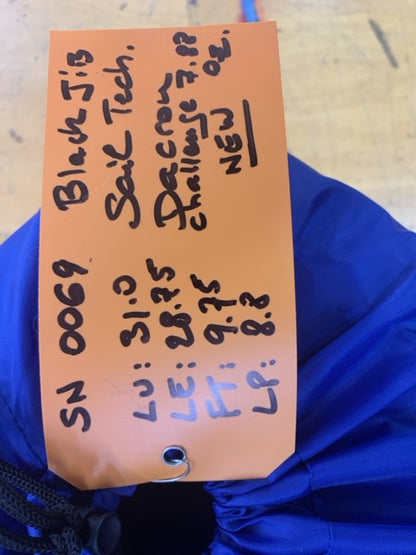 SN 0069 Black Jib
Sail Tech.
LU: 31.0
LE: 28.75 Dacron
Challenge 7.88 OZ.
FT: 9.75
LP: 8.8 NEW